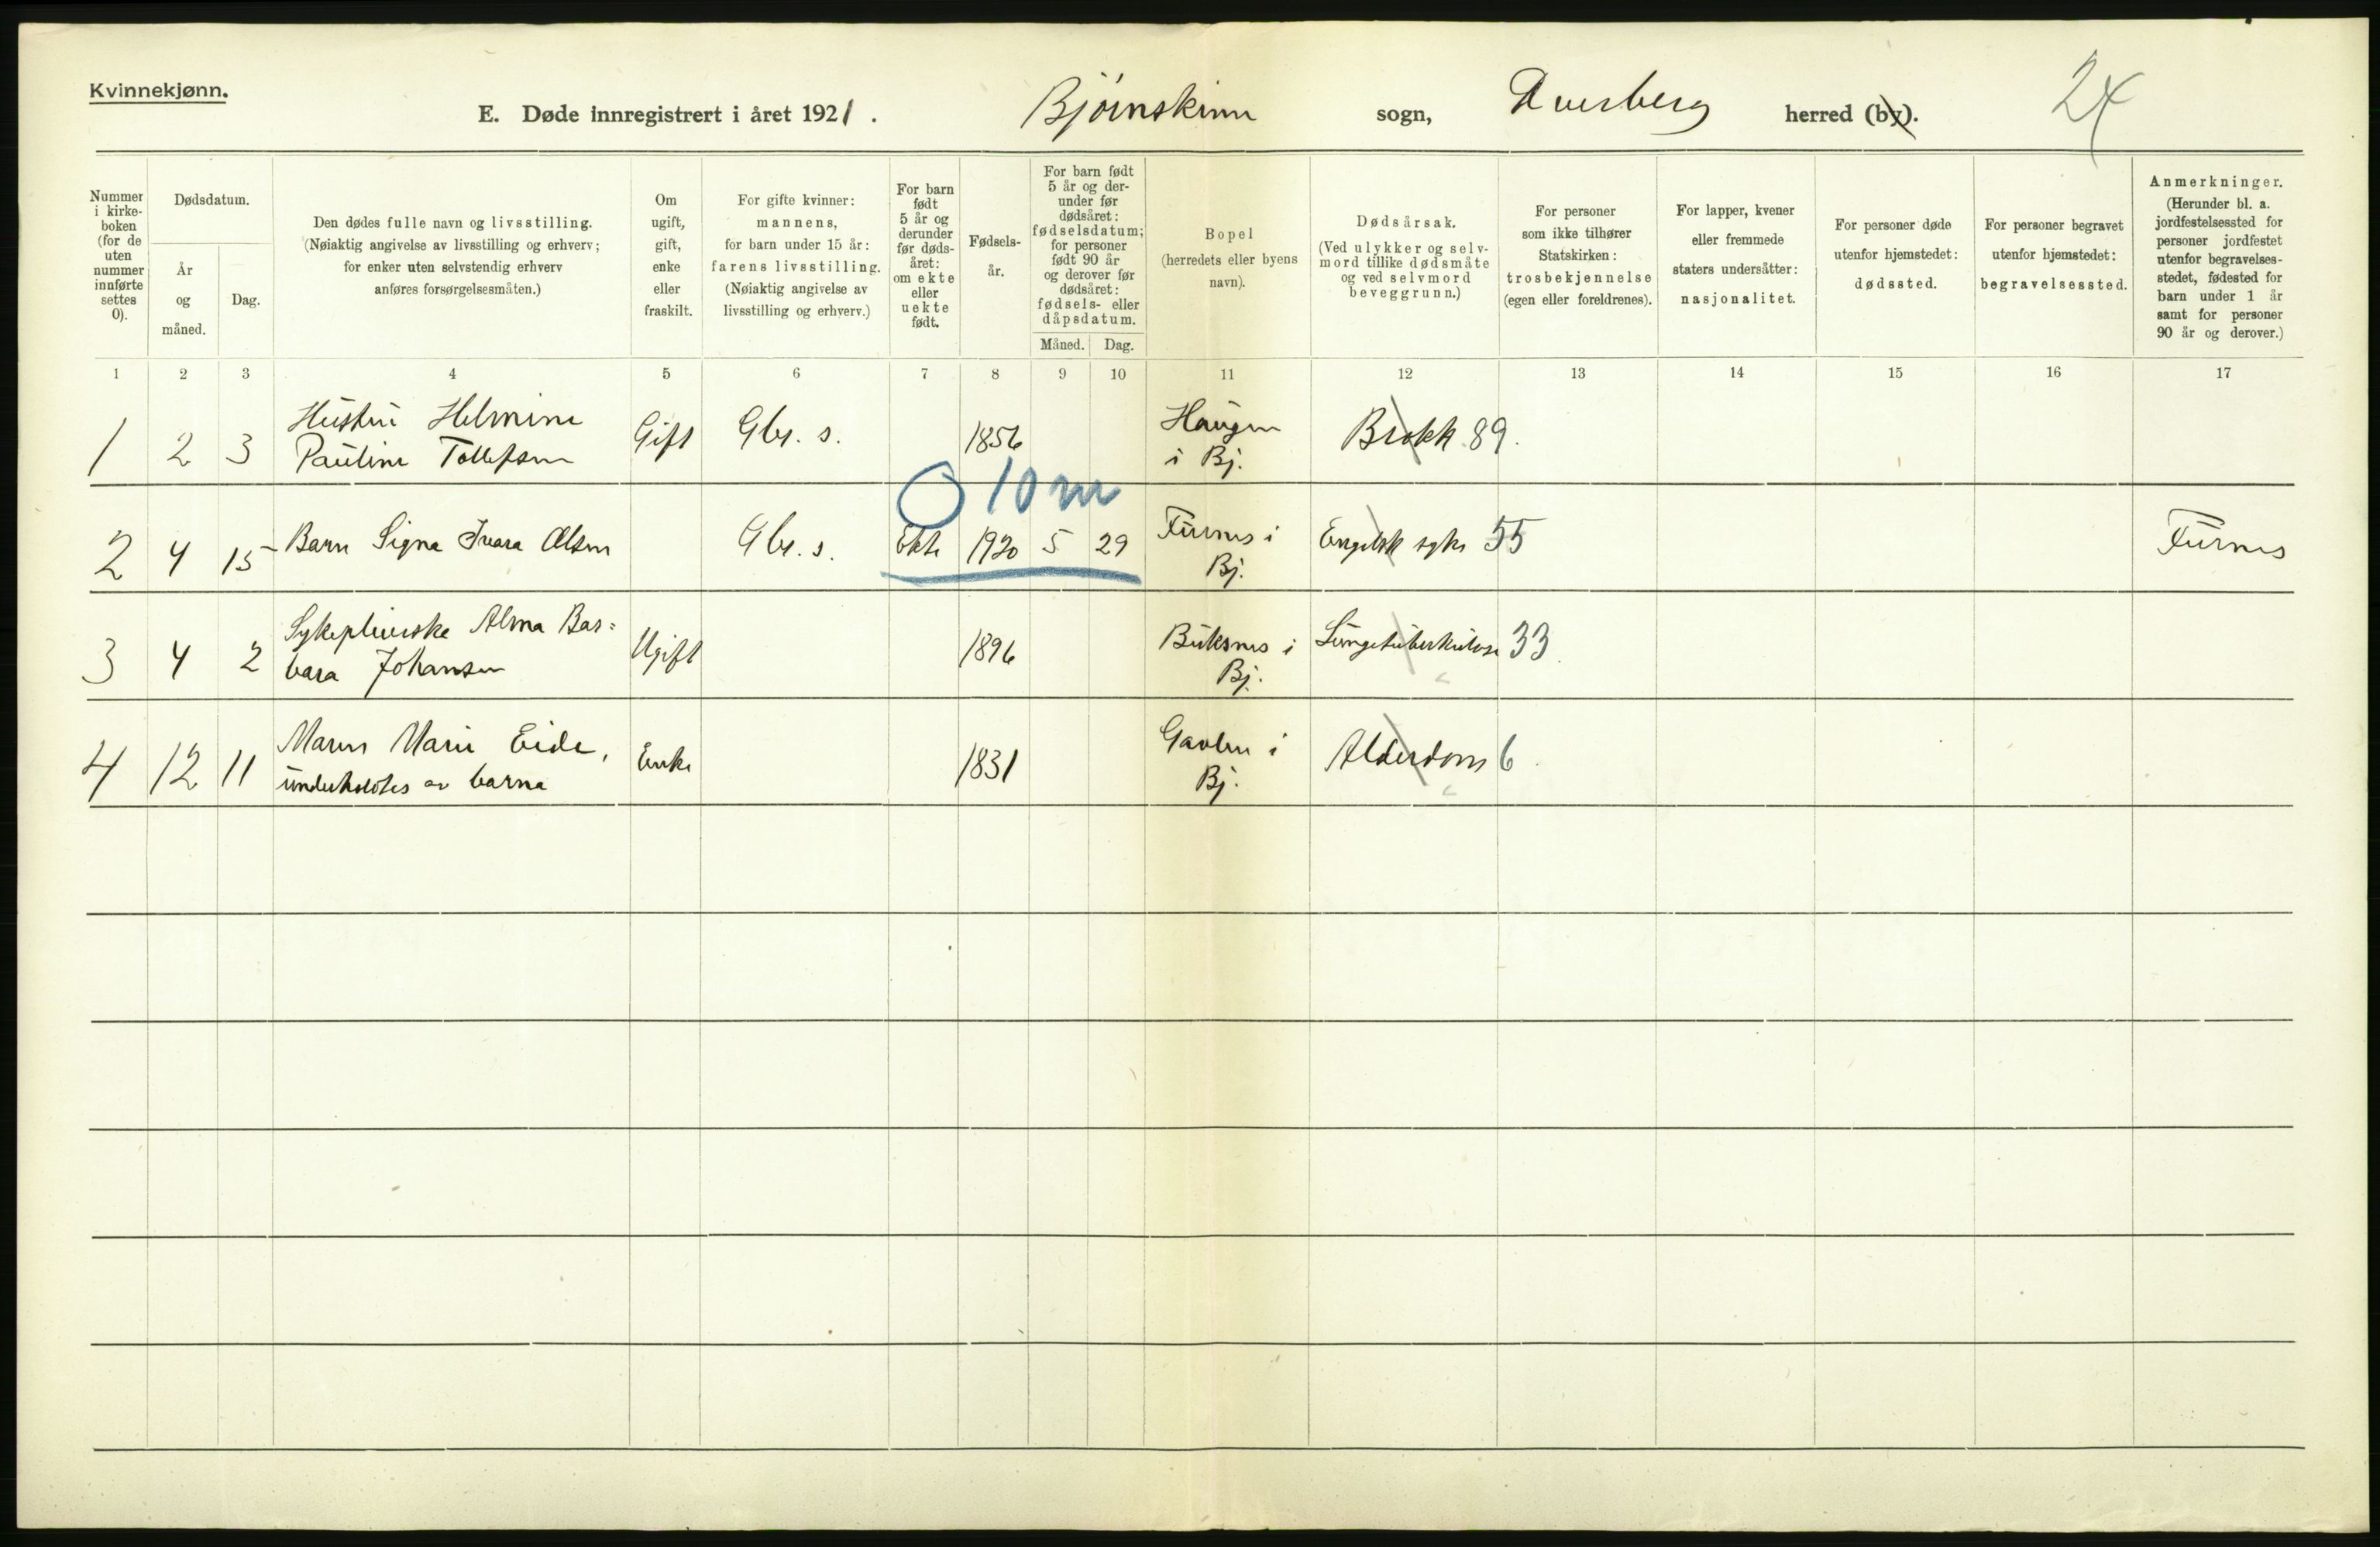 Kvinnekjønn.
E. Døde innregistrert i året 1921. Bjørnskinn sogn, Dverberg herred (by). 24
Nummer i kirke-boken (for de uten nummer innførte settes 0).
Dødsdatum.
År og måned.
Dag.
Den dødes fulle navn og livsstilling.
(Nøiaktig angivelse av livsstilling og erhverv;
for enker uten selvstendig erhverv
anføres forsørgelsesmåten.)
Om ugift, gift, enke eller fraskilt.
For gifte kvinner:
mannens,
for barn under 15 år:
farens livsstilling.
(Nøiaktig angivelse av
livsstilling og erhverv.)
For barn født 5 år og derunder før døds-året: om ekte eller uekte født.
Fødsels-år.
For barn født 5 år og der-under før dødsåret: fødselsdatum; for personer født 90 år og derover før dødsåret: fødsels- eller dåpsdatum.
Måned. Dag.
Bopel
(herredets eller byens
navn).
Dødsårsak.
(Ved ulykker og selv-
mord tillike dødsmåte
og ved selvmord
beveggrunn.)
For personer
som ikke tilhører
Statskirken:
trosbekjennelse
(egen eller foreldrenes).
For lapper, kvener
eller fremmede
staters undersåtter:
nasjonalitet.
For personer døde
utenfor hjemstedet:
dødssted.
For personer begravet
utenfor hjemstedet:
begravelsessted.
Anmerkninger.
(Herunder bl. a.
jordfestelsessted for
personer jordfestet
utenfor begravelses-
stedet, fødested for
barn under 1 år
samt for personer
90 år og derover.)
1 2 3 4 5 6 7 8 9 10 11 12 13 14 15 16 17
Hustru Helmine Haugen
1 2 3 Pauline Tollefsen Gift Gbr. s. 1856 i Bj. Brokk 89.
0 10 m
2 4 15 Barn Signa Ivara Olsen Gbr. s. Ekte 1920 5 29 Furnes i Engelsk syke 55 Furnes
Bj.
Sykepleierske Alma Bar=
3 4 2 bara Johansen Ugift 1896 Buksnes i Lungetuberkulose 33
Bj.
Maren Marie Eide, Gavlen i
4 12 11 underholdtes av barna Enke 1831 Bj. Alderdom 6